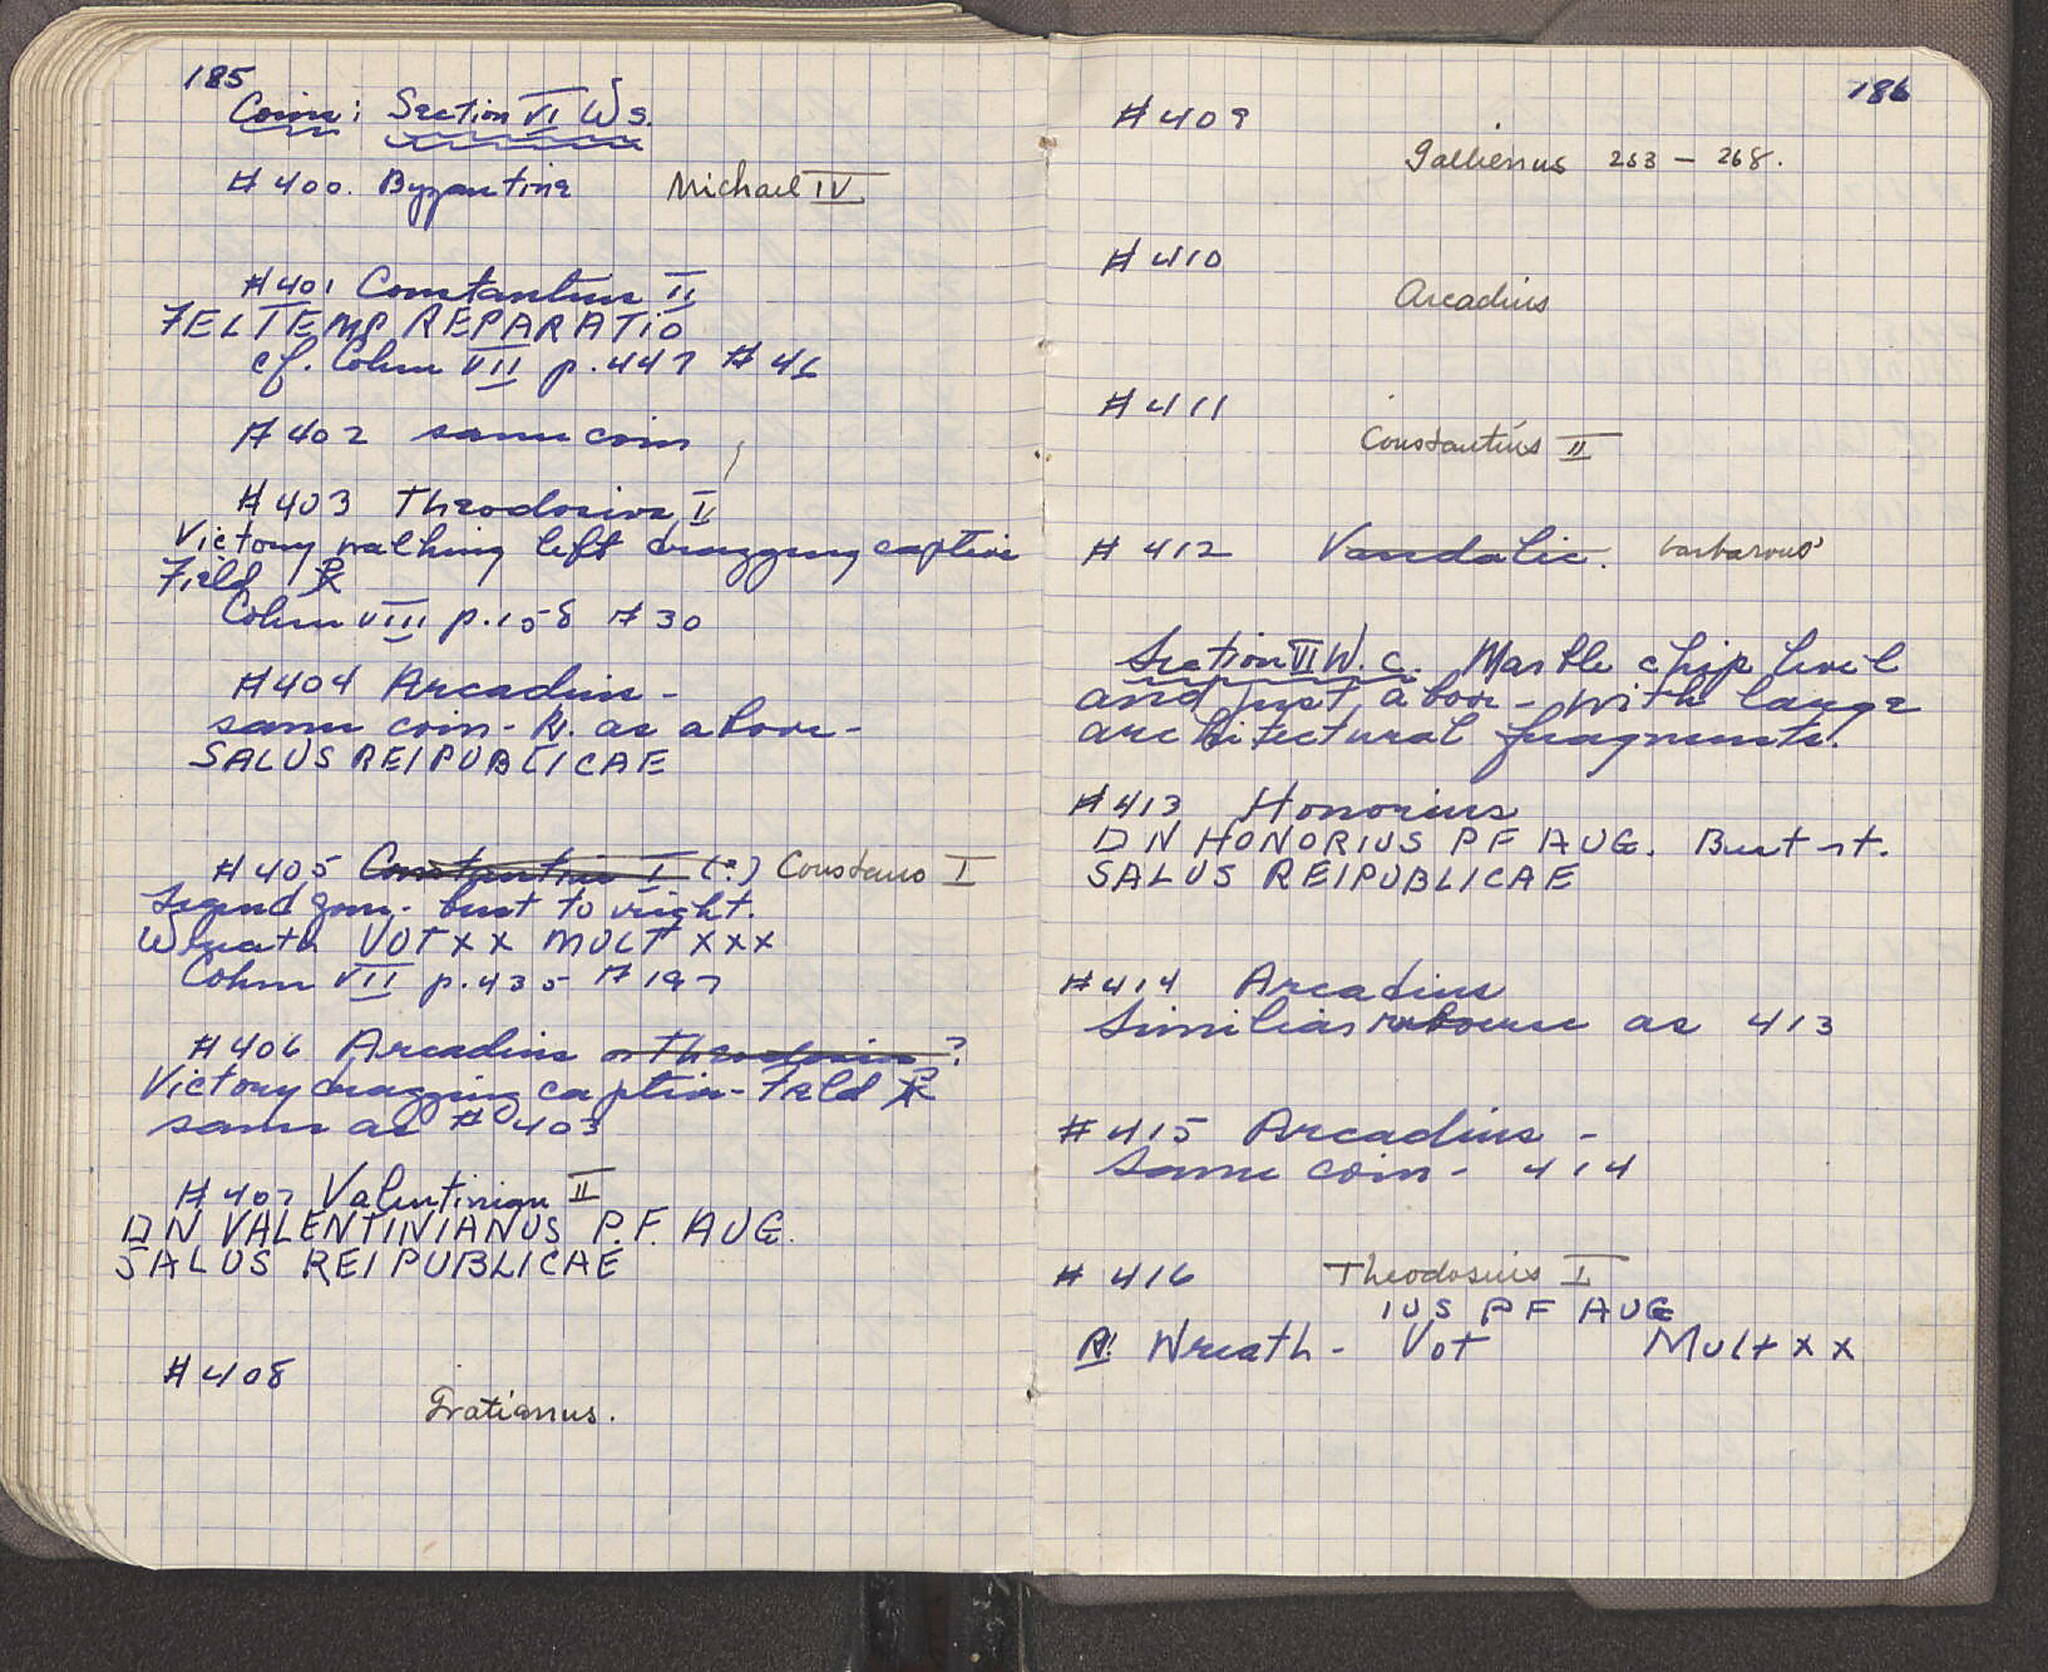 185
Coins: Section VI Ws.
#400. Byzantine Michael IV
#401 Constantius II
FEL TEMP REPARATIO
cf. Cohen VII p.447 #46
#402 same coin
#403 Theodosius I
Victory walking left dragging captive
Field ⳩
Cohen VIII p.158 #30
#404 Arcadius -
same coin - R. as above -
SALUS REIPUBLICAE
#405 Constantius I (?) Constans I
Legend gone - bust to right.
Wreath VOT XX MULT XXX
Cohen VII p.435 #197
#406 Arcadius or Theodosius?
Victory dragging captive - Field ⳩
same as #403
#407 Valentinian II
DN VALENTINIANUS P.F. AUG.
SALUS REIPUBLICAE
#408
Gratianus.
186
#409
Gallienus 253 - 268.
#410
Arcadius
#411
Constantius II
#412 Vandalic. barbarous
Section VII W.C. Marble chip level
and just above - with large
architectural fragments.
#413 Honorius
DN HONORIUS PF AUG. Bust rt.
SALUS REIPUBLICAE
#414 Arcadius
Similiar reverse as 413
#415 Arcadius -
Same coin - 414
#416 Theodosius I
IUS PF AUG
R! Wreath - Vot Mult XX